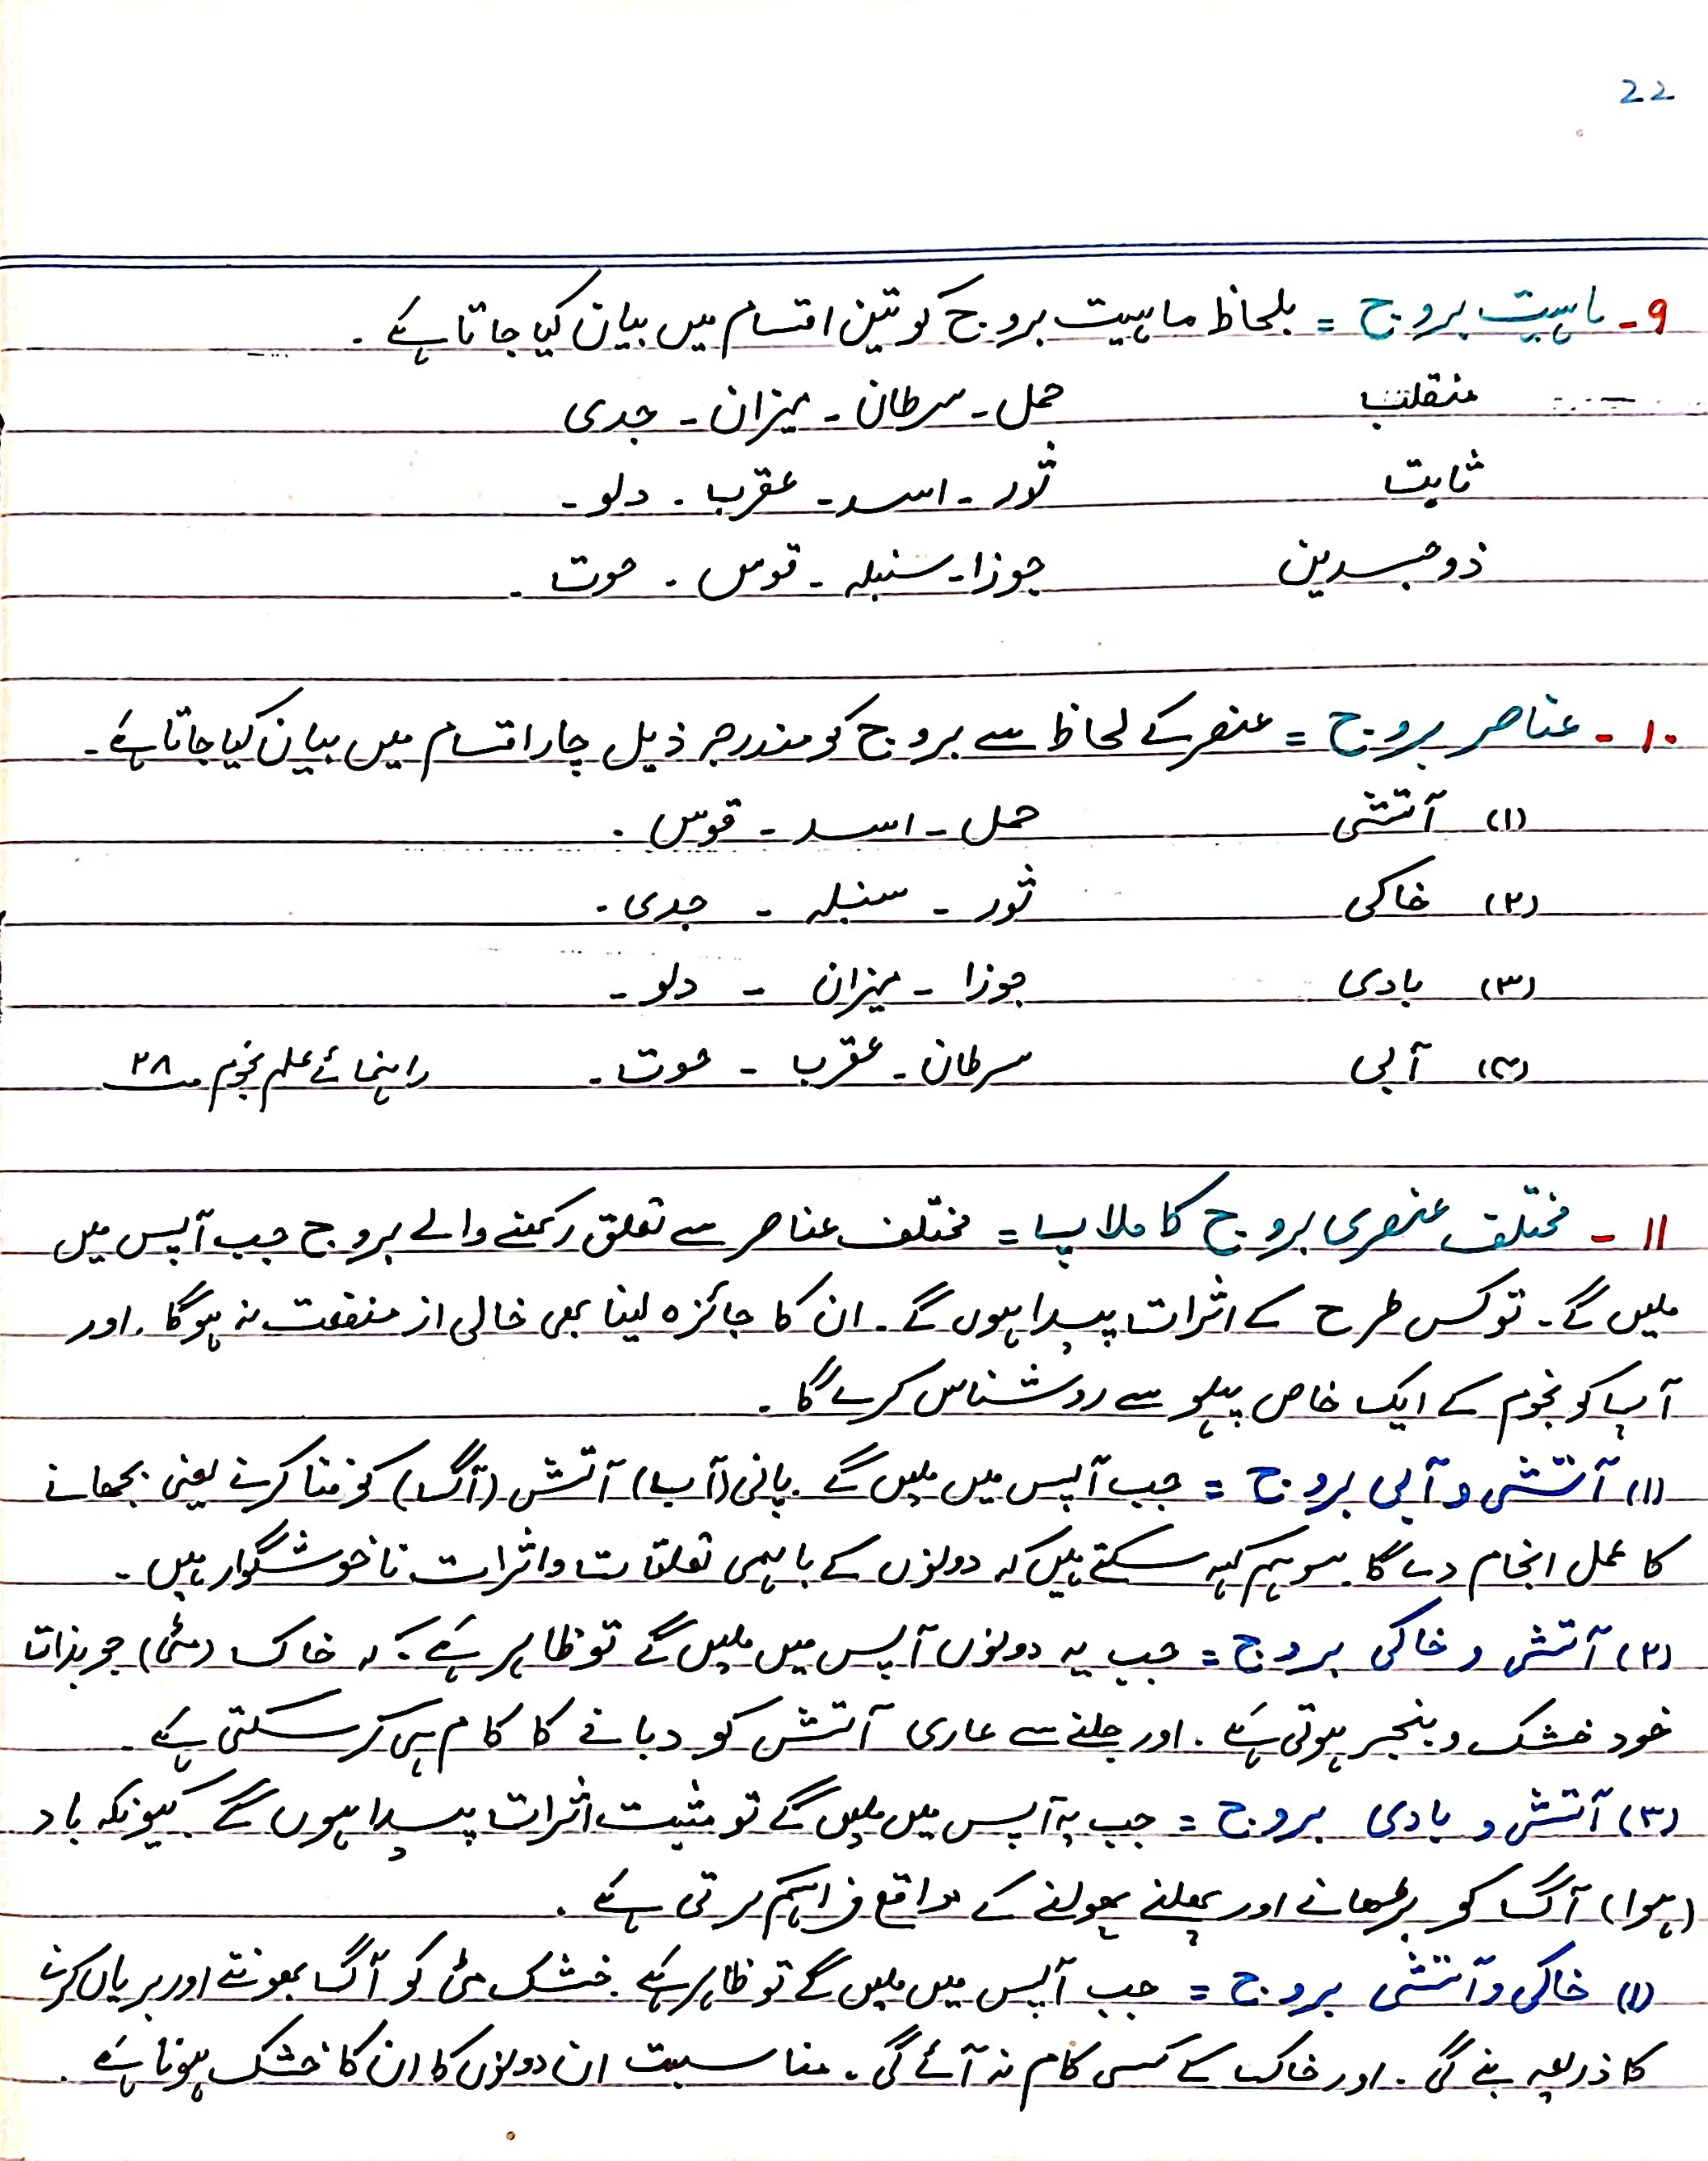 22
۹- ماہیت بروج = بلحاظ ماہیت بروج کو تین اقسام میں بیان کیا جاتا ہے ۔
منقلب حمل - سرطان - میزان - جدی
ثابت ثور - اسد - عقرب - دلو -
ذوجسدین جوزا - سنبلہ - قوس - حوت -
۱۰- عناصر بروج = عنصر کے لحاظ سے بروج کو مندرجہ ذیل چار اقسام میں بیان کیا جاتا ہے -
(۱) آتشی حمل - اسد - قوس -
(۲) خاکی ثور - سنبلہ - جدی -
(۳) بادی جوزا - میزان - دلو -
(۴) آبی سرطان - عقرب - حوت - راہنمائے علم نجوم ص ۲۸
۱۱- مختلف عنصری بروج کا ملاپ = مختلف عناصر سے تعلق رکھنے والے بروج جب آپس میں
ملیں گے - تو کس طرح کے اثرات پیدا ہوں گے - ان کا جائزہ لینا بھی خالی از منفعت نہ ہوگا ۔ اور
آپ کو نجوم کے ایک خاص پہلو سے روشناس کرے گا -
(۱) آتشی و آبی بروج = جب آپس میں ملیں گے ۔ پانی (آب) آتش (آگ) کو فنا کرنے یعنی بجھانے
کا عمل انجام دے گا ۔ سو ہم کہہ سکتے ہیں کہ دونوں کے باہمی تعلقات و اثرات ناخوشگوار ہیں -
(۲) آتشی و خاکی بروج = جب یہ دونوں آپس میں ملیں گے تو ظاہر ہے ۔ کہ خاک (مٹی) جو بذات
خود خشک و بنجر ہوتی ہے ۔ اور جلنے سے عاری آتش کو دبانے کا کام ہی کر سکتی ہے -
(۳) آتشی و بادی بروج = جب یہ آپس میں ملیں گے تو مثبت اثرات پیدا ہوں گے ۔ کیونکہ باد
(ہوا) آگ کو بڑھانے اور پھلنے پھولنے کے مواقع فراہم کرتی ہے ۔
(۱) خاکی و آتشی بروج = جب آپس میں ملیں گے تو ظاہر ہے ۔ خشک مٹی کو آگ بھوننے اور بریاں کرنے
کا ذریعہ بنے گی ۔ اور خاک کے کسی کام نہ آئے گی - مناسبت ان دونوں کا ان کا خشک ہونا ہے ۔